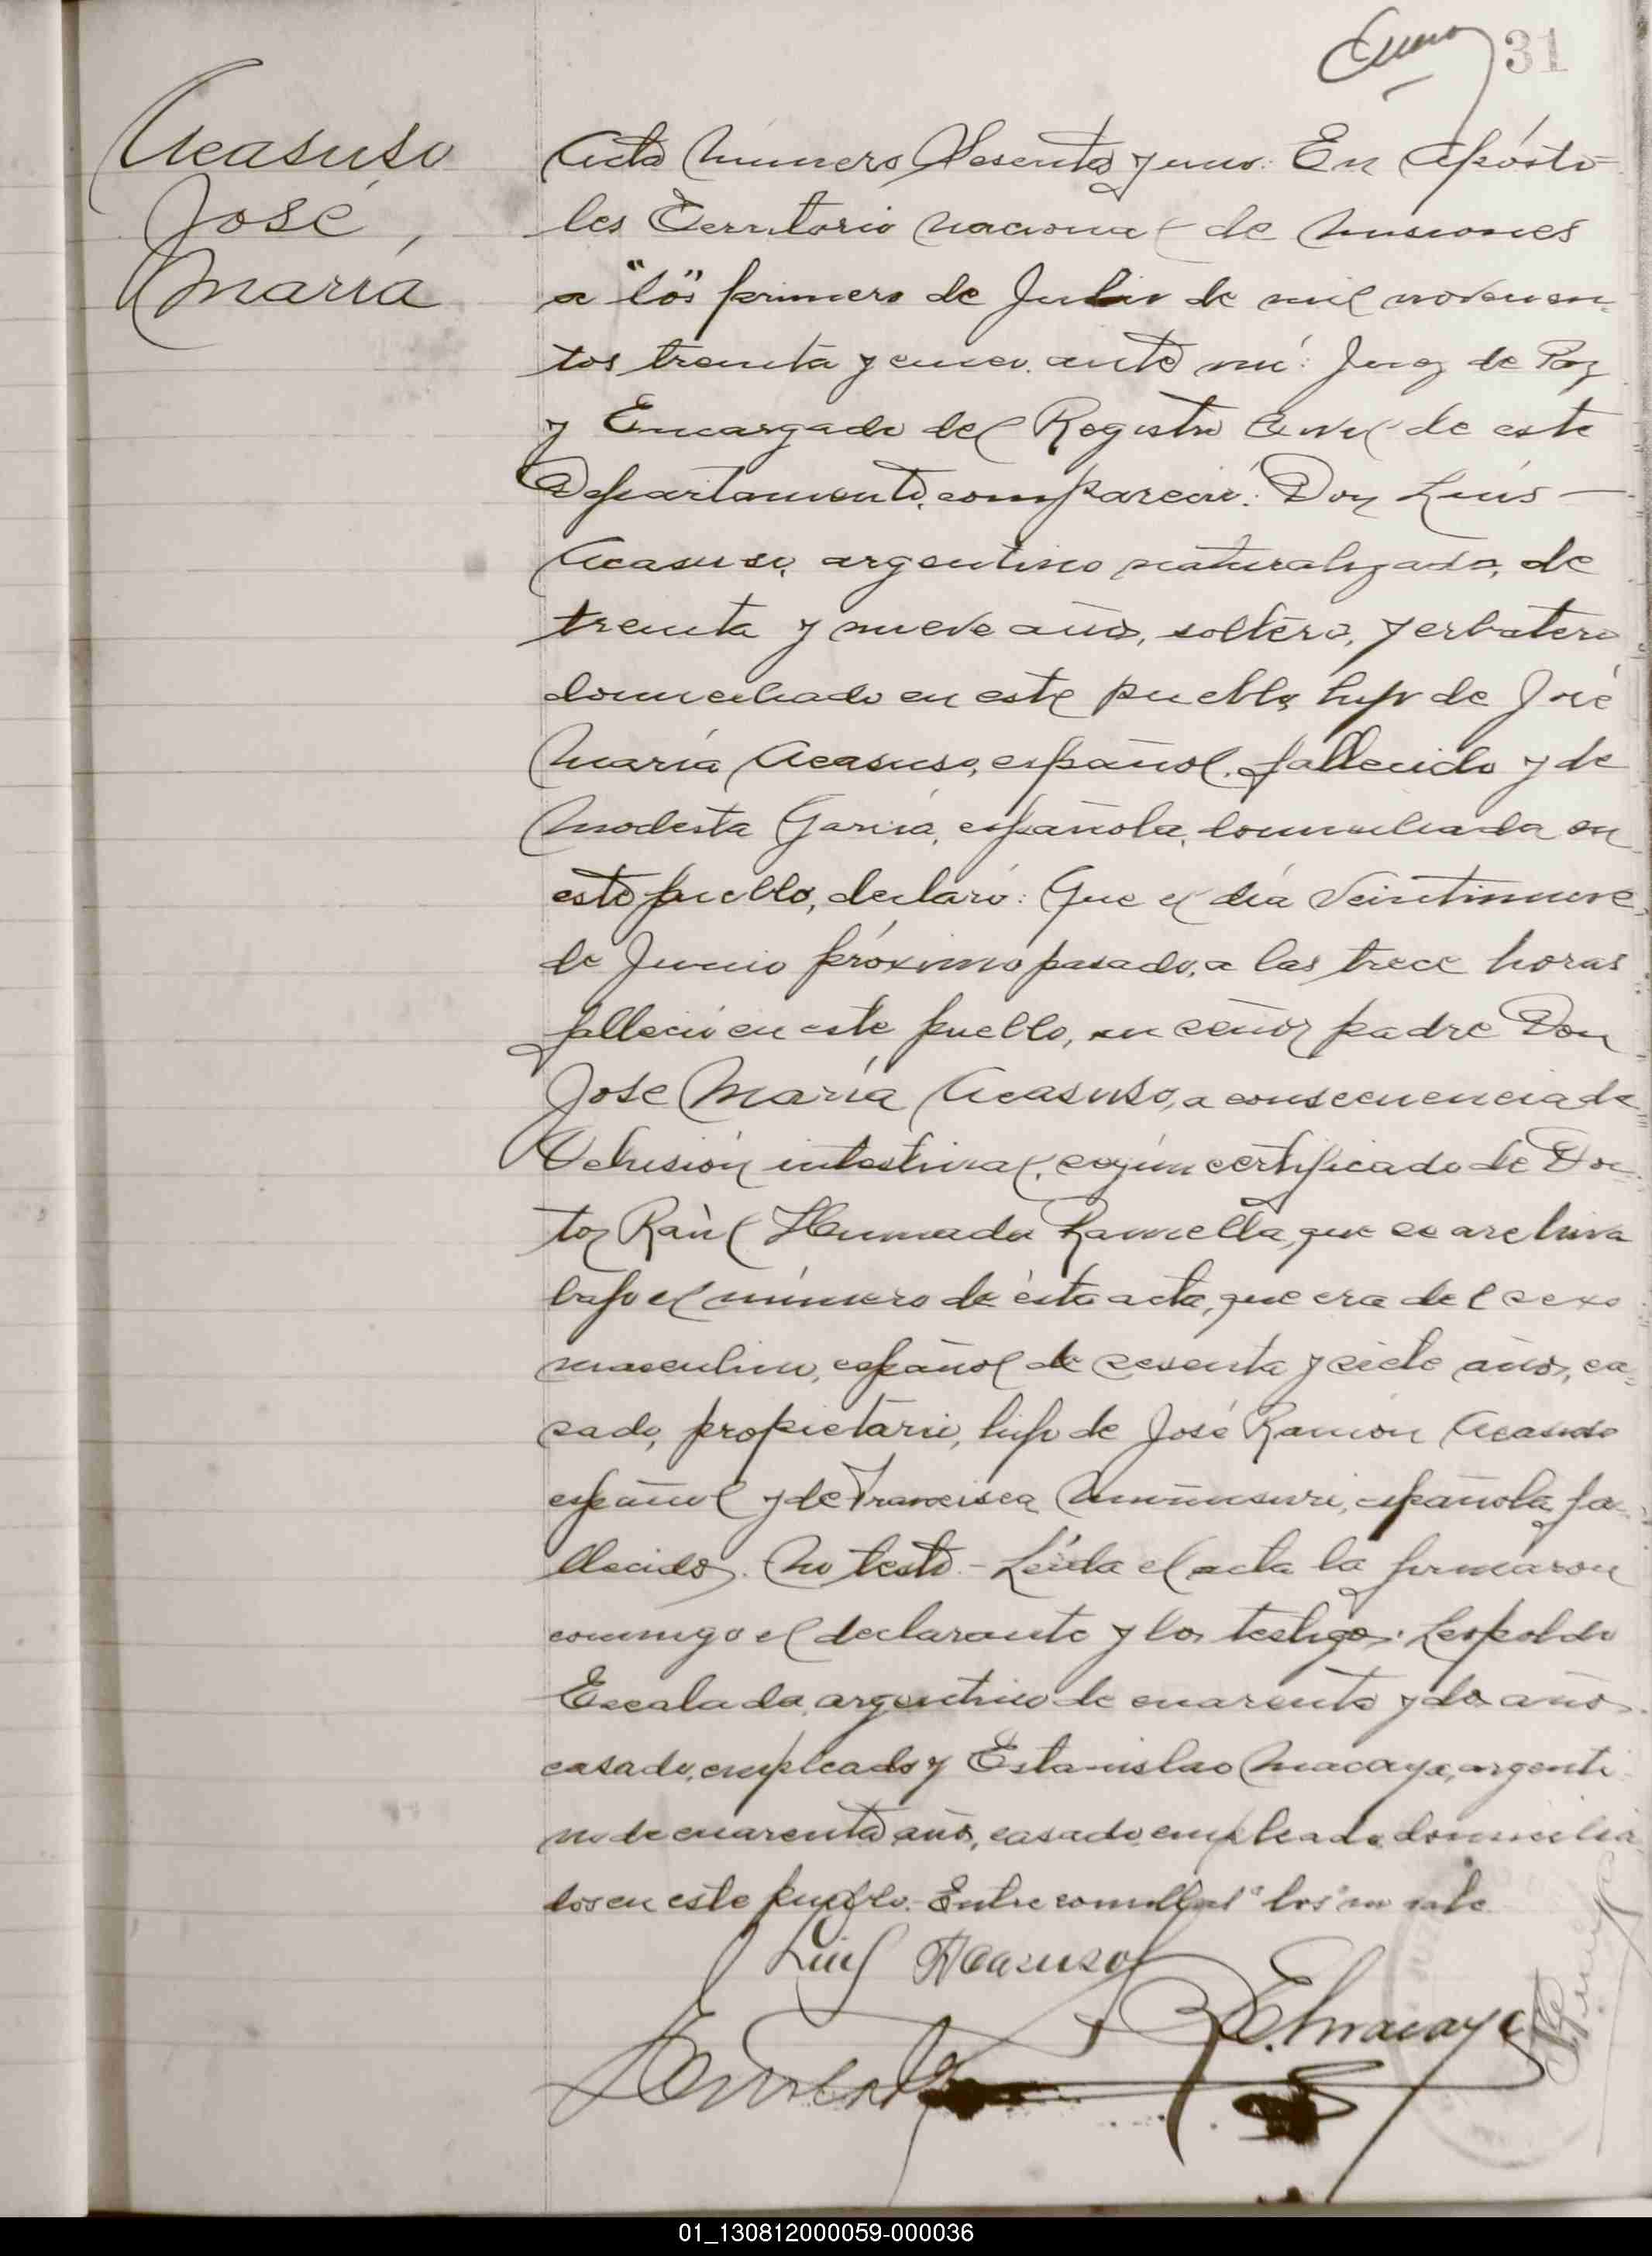 31
Acasuso
José
María
Acta número Sesenta y uno. En Apósto-
les Territorio nacional de Misiones
a "los" primero de Julio de mil novecien-
tos treinta y cinco. ante mí: Juez de Paz
y Encargado del Registro Civil de este
Departamento, compareció: Don Luís —
Acasuso, argentino naturalizado, de
treinta y nueve años, soltero, yerbatero
domiciliado en este pueblo, hijo de José
María Acasuso, español, fallecido y de
Modesta García, española, domiciliada en
este pueblo, declaró: Que el día veintinueve
de Junio próximo pasado, a las trece horas
falleció en este pueblo, su señor padre Don
Jose María Acasuso, a consecuencia de
Oclusión intestinal, según certificado de Doc-
tor Raúl Ramella, que se archiva
bajo el número de ésta acta, que era del sexo
masculino, español de sesenta y siete años, ca-
sado, propietario, hijo de José Ramón Acasuso
español y de Francisca española, fa-
llecidos. No testó. - Leída el acta la firmaron
conmigo el declarante y los testigos: Leopoldo
Escalada, argentino de cuarenta y dos años
casado, empleado y Estanislao Macaya, argenti-
no de cuarenta años, casado, empleado, domicilia
dos en este pueblo. - Entre comillas "los" no vale
Luis Acasuso
E. Macaya
01_130812000059-000036